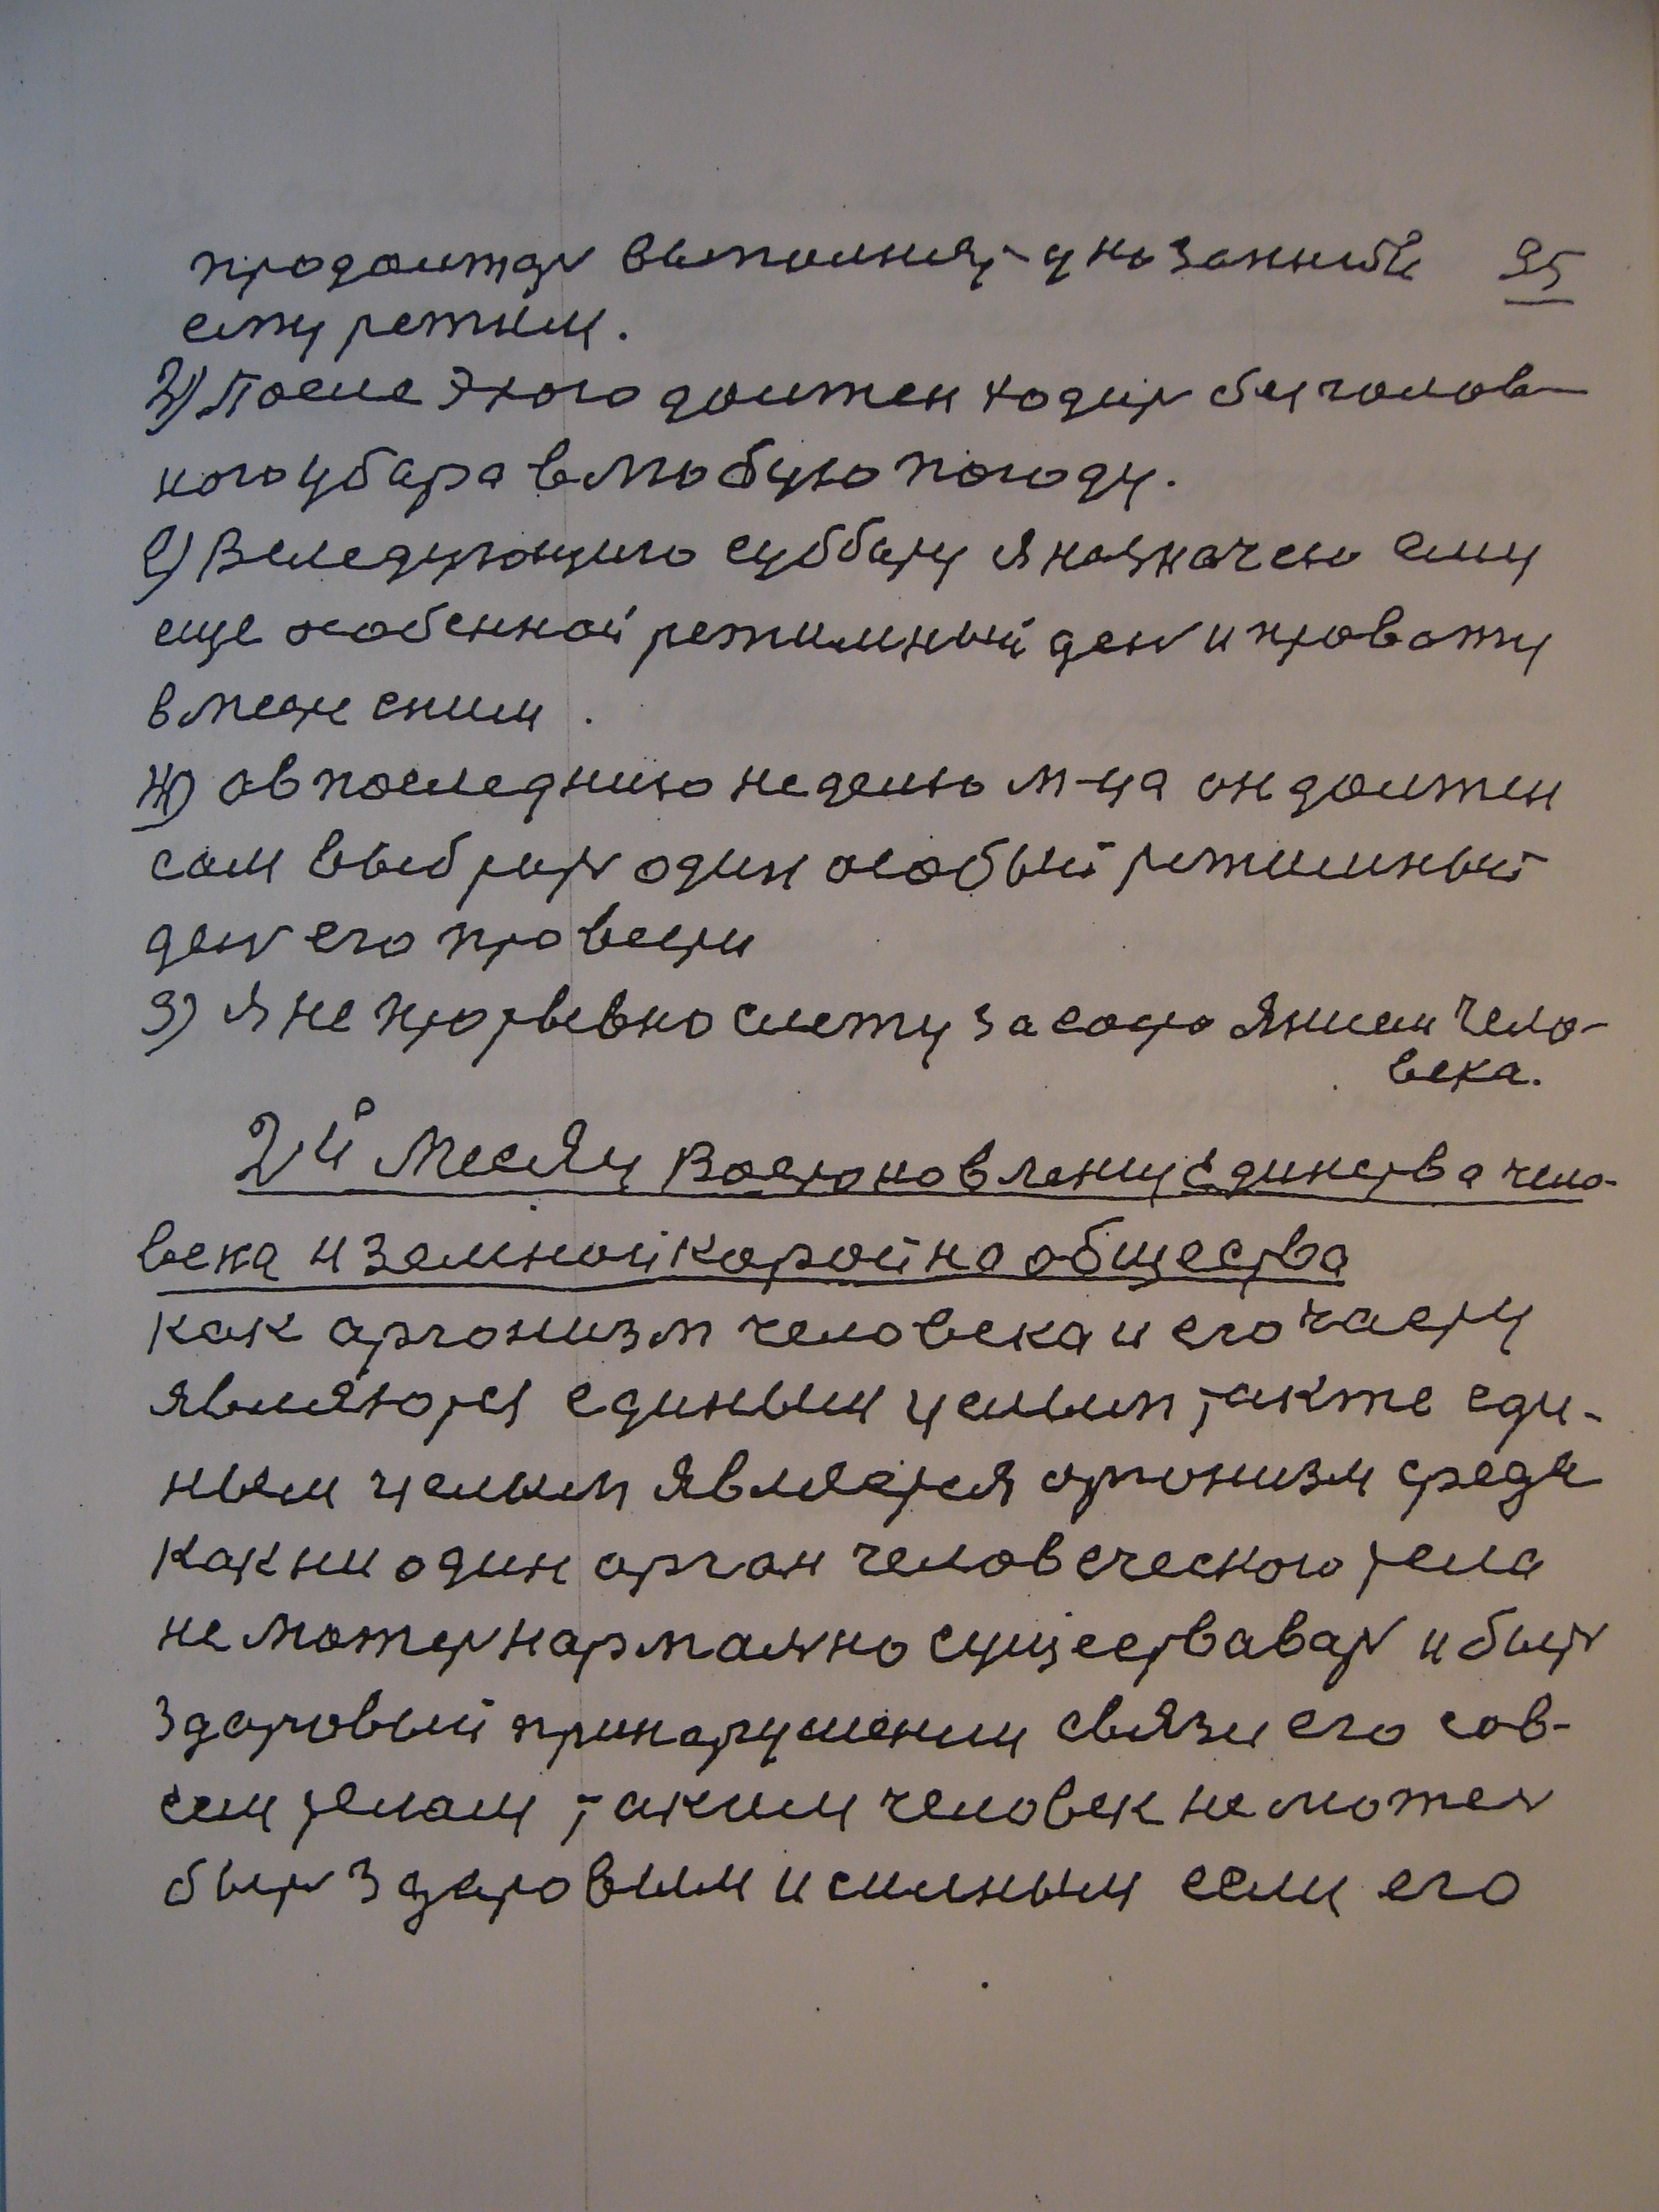 продолжать выполнять указанный 35
ему режим.
д) После этого должен ходить без голов-
ного убара в любую погоду.
е) В следующию субботу я назначею ему
еще особенной режимный день и провожу
вместе с ним.
ж) а в последнию неделю м-ца он должен
сам выбрать один особый режимный
день его провести
з) Я непрорывно слежу за состоянием чело-
века.
2й Месяц Востоновлениу единства чело-
века и земной карой на общества
как аргонизм человека и его часту
являются единым целым также еди-
ным целым является аргонизм среда
как ни один арган человеческого тела
не может нармально существавать и быть
здаровый при нарушении связи его сов-
сем телом, таким человек не может
быть здаровым и силным если его